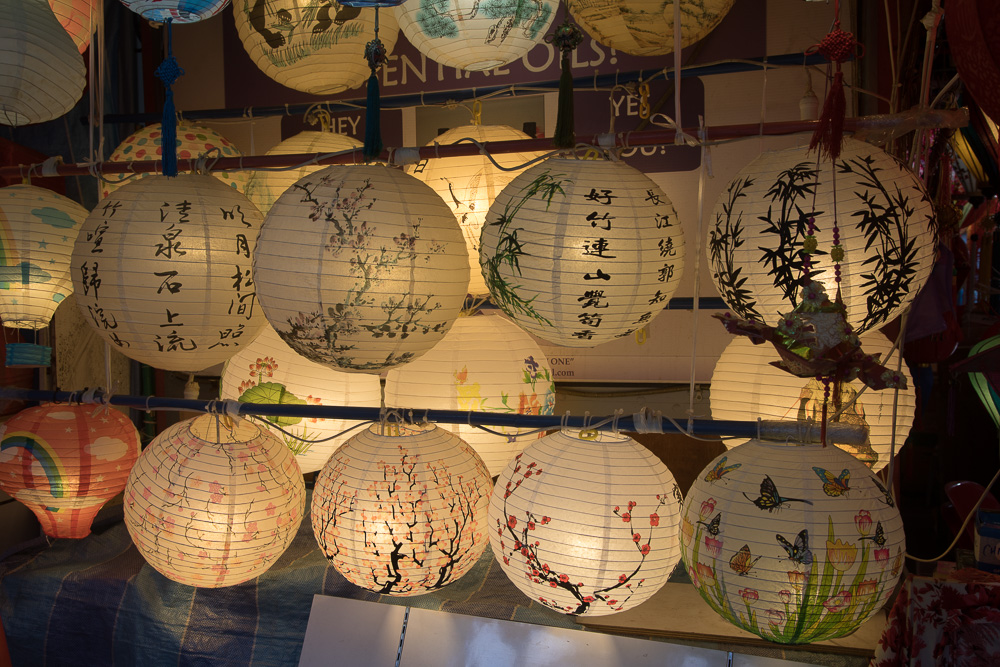 ENTIAL OILS!
HEY
YE
明月松間照
清泉石上流
竹喧歸浣
長江繞郭知
好竹連山覺筍香
ONE"
.com